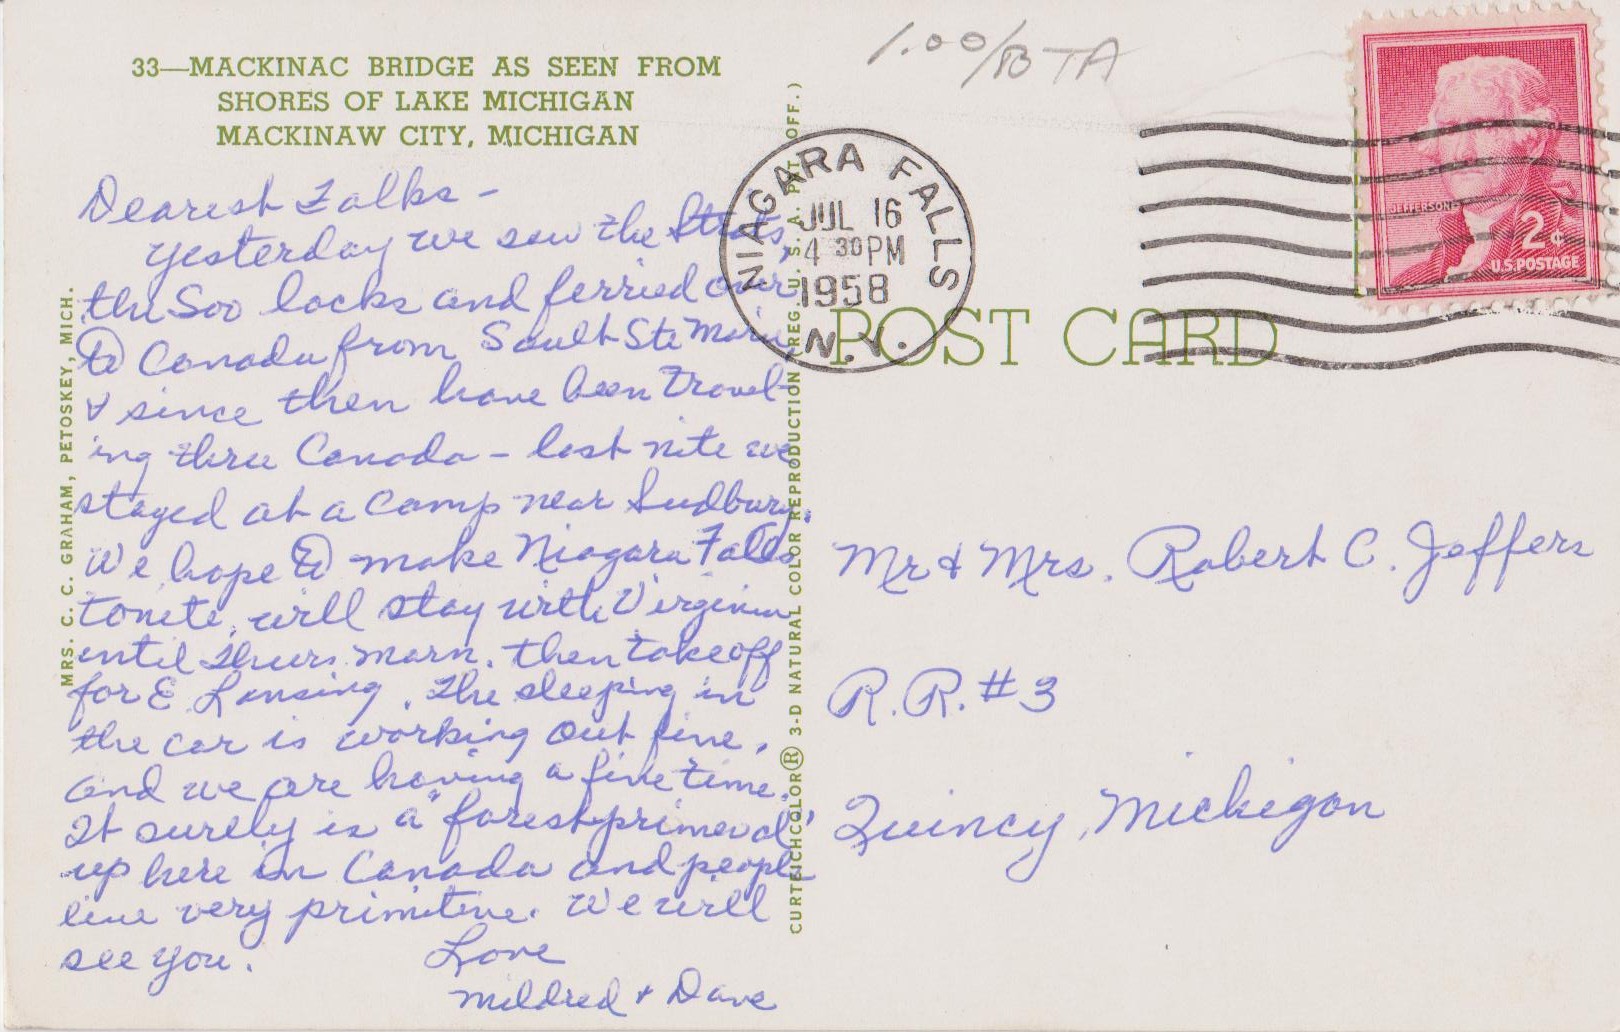 33—MACKINAC BRIDGE AS SEEN FROM
SHORES OF LAKE MICHIGAN
MACKINAW CITY, MICHIGAN
Dearest Folks -
Yesterday we saw the Strats,
the Soo locks and ferried over
to Canada from Sault Ste Marie
& since then have been travel-
ing thru Canada - last nite we
stayed at a camp near Sudbury.
We hope to make Niagara Falls
tonite, will stay with Virginia
until Thurs. morn. then takeoff
for E Lansing. The sleeping in
the car is working out fine,
and we are having a fine time.
It surely is a "forest primeval"
up here in Canada and people
live very primitive. We will
see you.
Love
Mildred & Dave
MRS. C. C. GRAHAM, PETOSKEY, MICH.
CURTEICHCOLOR® 3-D NATURAL COLOR REPRODUCTION (REG. U. S. A. PAT. OFF.)
1.00/B TA
NIAGARA FALLS
JUL 16
4 30 PM
1958
N.Y.
JEFFERSON
2¢
U.S. POSTAGE
POST CARD
Mr & Mrs. Robert C. Jeffers
R.R. #3
Quincy, Michigan